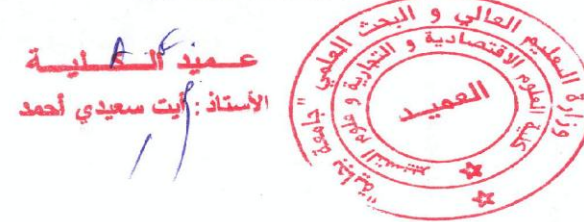 عميد الكلية
الأستاذ : أيت سعيدي أحمد
وزارة التعليم العالي و البحث العلمي "جامعة بجاية"
كلية العلوم الاقتصادية و التجارية و علوم التسيير
العميد